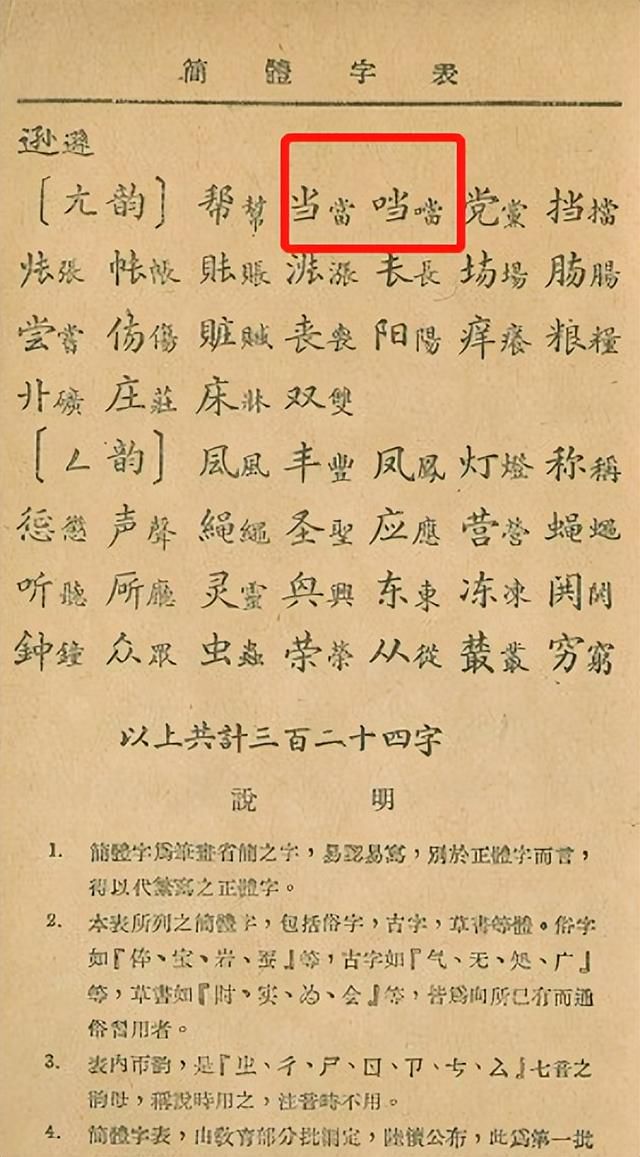 簡體字表
逊遜
〔ㄤ韵〕 帮幫 当當 噹 党黨 挡擋
張 帐帳 賬 漲 長 場 腸
尝嘗 伤傷 赃贓 丧喪 阳陽 痒癢 粮糧
卝礦 庄莊 床牀 双雙
〔ㄥ韵〕 凨風 丰豐 凤鳳 灯燈 称稱
惩懲 声聲 繩 圣聖 应應 营營 蝇蠅
听聽 厛廳 灵靈 興 东東 冻凍 関
鈡鐘 众眾 虫蟲 荣榮 从從 叢 穷窮
以上共計三百二十四字
說明
1. 簡體字爲筆畫省簡之字，易認易寫，別於正體字而言，
得以代繁寫之正體字。
2. 本表所列之簡體字，包括俗字，古字，草書等體。俗字
如『体、宝、岩、蚕』等，古字如『气、无、処、广』
等，草書如『时、实、为、会』等，皆爲向所已有而通
俗習用者。
3. 表內帀韵，是『ㄓ、ㄔ、ㄕ、ㄖ、ㄗ、ㄘ、ㄙ』七音之
韵母，稱說時用之，注音時不用。
4. 簡體字表，由敎育部分批制定，陸續公布，此爲第一批